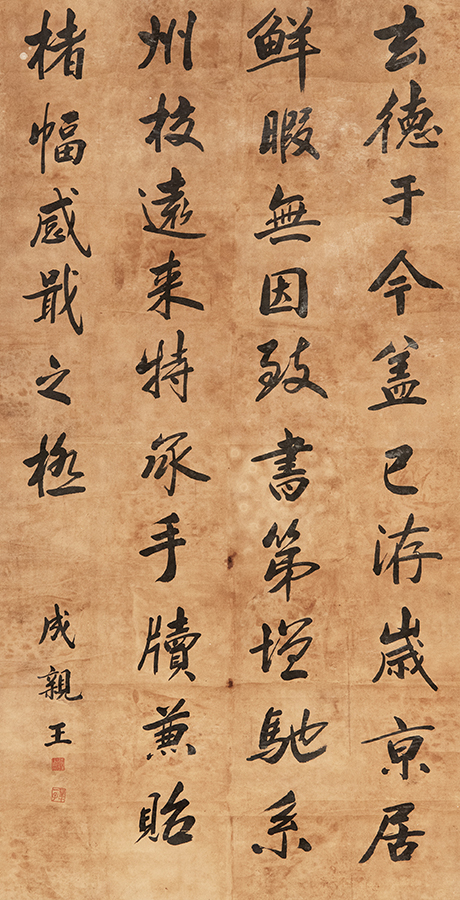 去德于今盖已洊歲京居
鮮暇無因致書第增馳系
州校遠来特承手牘兼貽
楮幅感戢之極
成親王